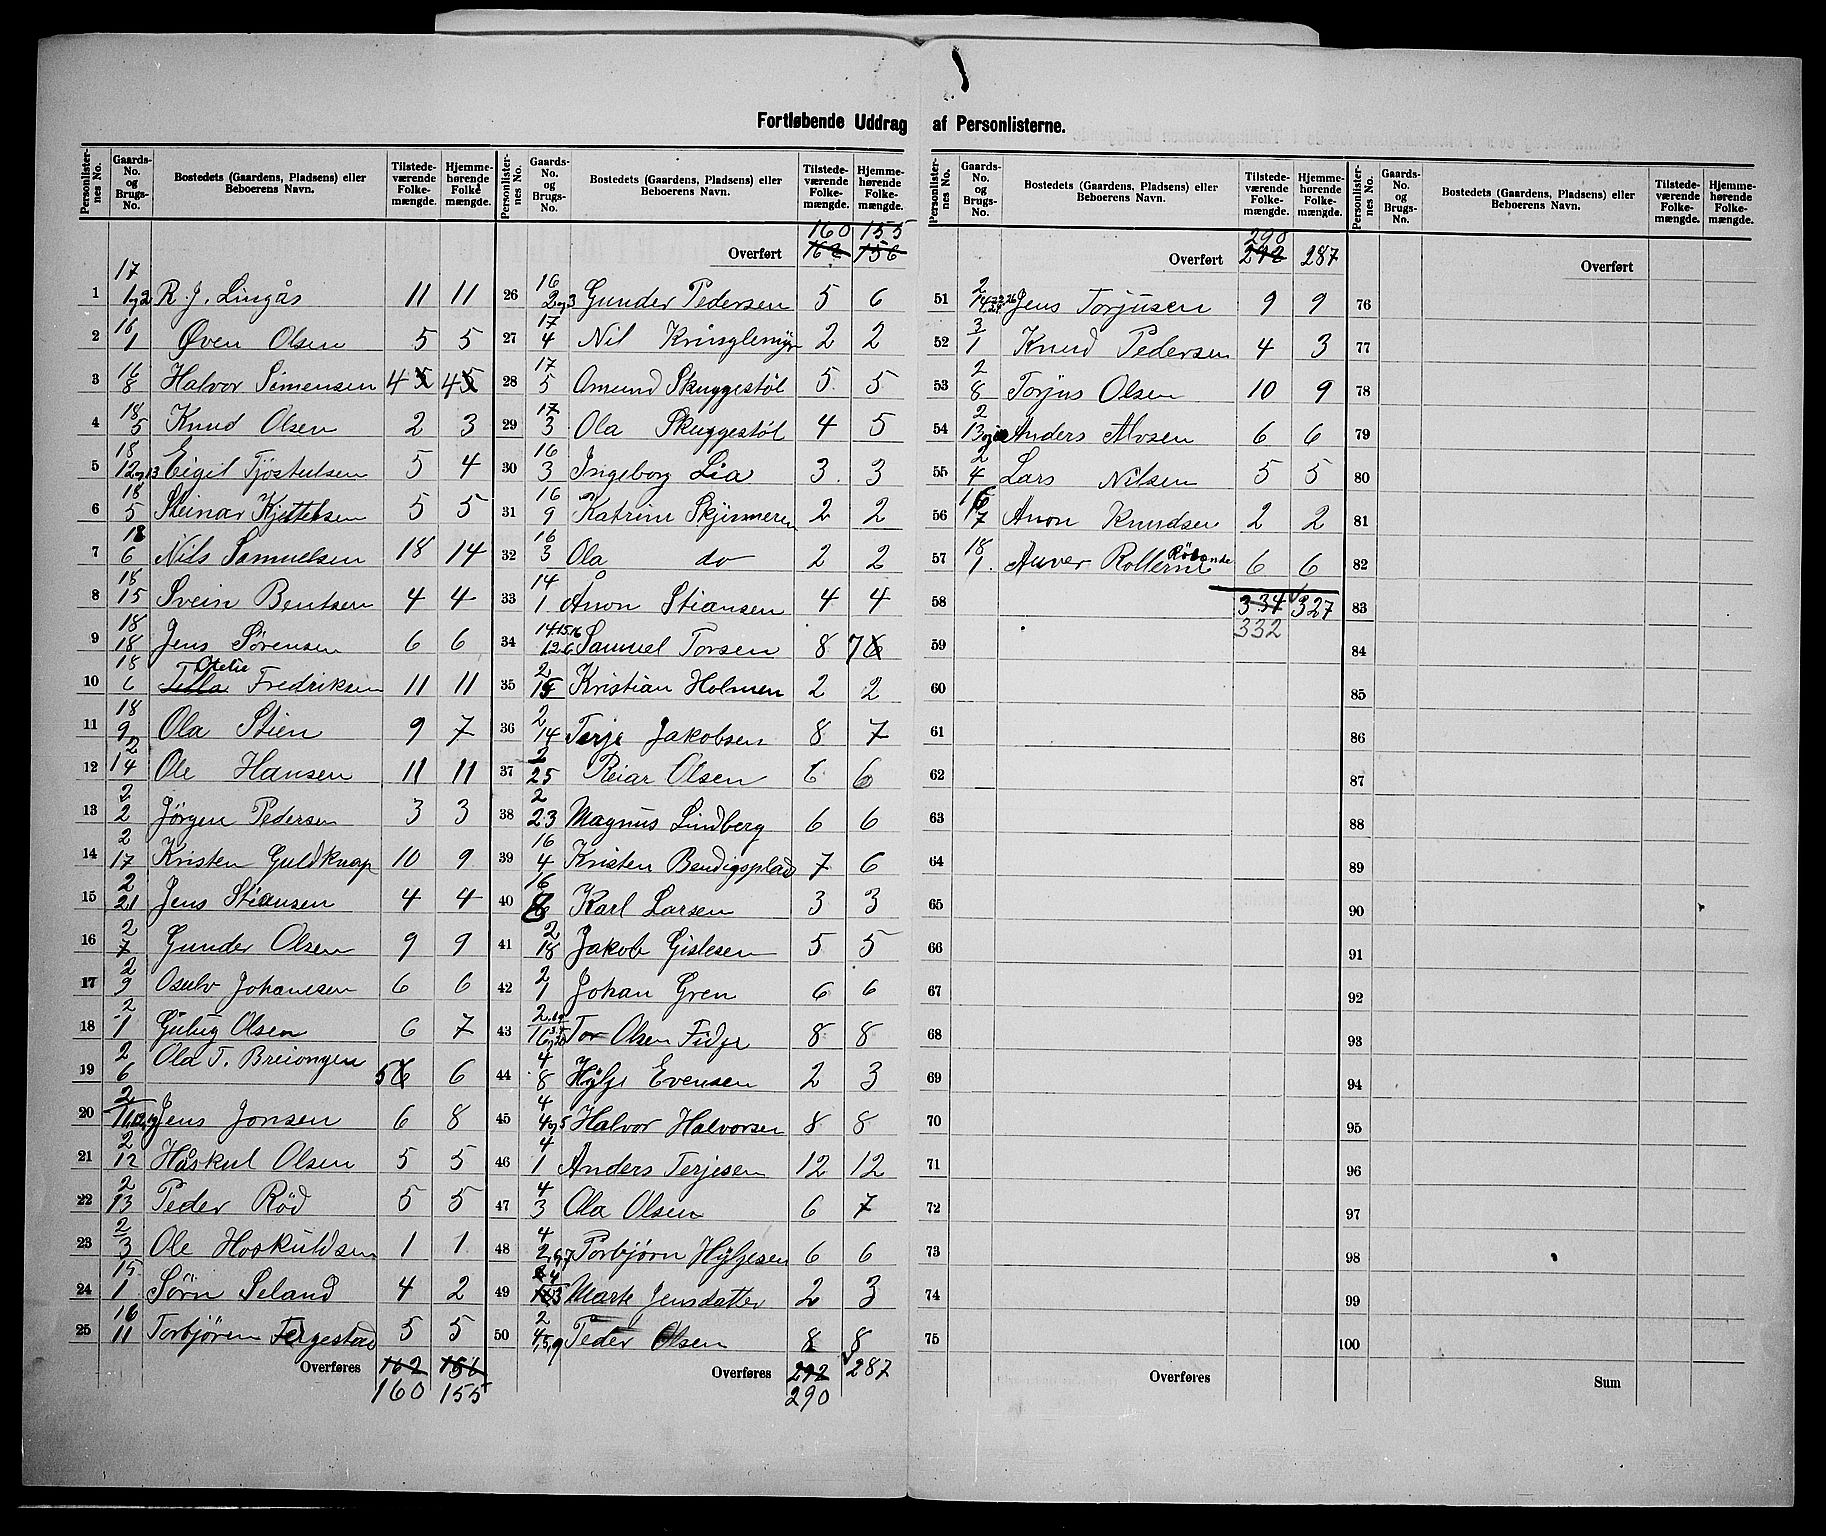 Fortløbende Uddrag af Personlisterne.
Personlister-nes No. | Gaards-No. og Brugs-No. | Bostedets (Gaardens, Pladsens) eller Beboerens Navn. | Tilstede-værende Folke-mængde. | Hjemme-hørende Folke-mængde.
1 | 17 1og2 | R. J. Lingås | 11 | 11
2 | 16 1 | Øven Olsen | 5 | 5
3 | 16 8 | Halvor Simensen | 4 5 | 4 5
4 | 18 5 | Knud Olsen | 2 | 3
5 | 18 12og13 | Eigil Tjöstulsen | 5 | 4
6 | 18 5 | Steinar Kjittelsen | 5 | 5
7 | 18 6 | Nils Samuelsen | 18 | 14
8 | 18 15 | Svein Bentsen | 4 | 4
9 | 18 18 | Jens Sørensen | 6 | 6
10 | 18 6 | Fredriksen | 11 | 11
11 | 18 9 | Ola Stien | 9 | 7
12 | 2 14 | Ole Hansen | 11 | 11
13 | 2 2 | Jörgen Pedersen | 3 | 3
14 | 2 17 | Kristen Guldknap | 10 | 9
15 | 2 21 | Jens Stiansen | 4 | 4
16 | 2 7 | Gunder Olsen | 9 | 9
17 | 2 9 | Osulv Johanesen | 6 | 6
18 | 2 1 | Olsen | 6 | 7
19 | 2 6 | Ola T. Breiongen | 5 6 | 6
20 | 2 | Jens Jonsen | 6 | 8
21 | 2 12 | Håskul Olsen | 5 | 5
22 | 2 13 | Peder Röd | 5 | 5
23 | 2 3 | Ole Hoskuldsen | 1 | 1
24 | 15 1 | Sörn Seland | 4 | 2
25 | 16 11 | Torbjören Fergestad | 5 | 5
Overføres | 162 160 | 156 155
Personlister-nes No. | Gaards-No. og Brugs-No. | Bostedets (Gaardens, Pladsens) eller Beboerens Navn. | Tilstede-værende Folke-mængde. | Hjemme-hørende Folke-mængde.
Overført | 160 162 | 155 156
26 | 16 2og3 | Gunder Pedersen | 5 | 6
27 | 17 4 | Nil Kringlemyr | 2 | 2
28 | 17 5 | Omund Skuggestöl | 5 | 5
29 | 17 3 | Ola Skuggestöl | 4 | 5
30 | 16 3 | Ingeborg Lia | 3 | 3
31 | 16 9 | Katrine Skjinneren | 2 | 2
32 | 16 3 | Ola do | 2 | 2
33 | 14 1 | Ånon Stiansen | 4 | 4
34 | 14 15 16 1 2 6 | Samuel Torsen | 8 | 7 6
35 | 2 15 | Kristian Holmen | 2 | 2
36 | 2 14 | Terje Jakobsen | 8 | 7
37 | 2 25 | Reiar Olsen | 6 | 6
38 | 2 23 | Magnus Lindberg | 6 | 6
39 | 16 4 | Kristen Bendigsplads | 7 | 6
40 | 16 | Karl Larsen | 3 | 3
41 | 2 18 | Jakob Gislesen | 5 | 5
42 | 2 1 | Johan Gren | 6 | 6
43 | 2 | Tor Olsen Fidje | 8 | 8
44 | 4 8 | Hylje Evensen | 2 | 3
45 | 4 4og5 | Halvor Halvorsen | 8 | 8
46 | 4 1 | Anders Terjesen | 12 | 12
47 | 4 3 | Ola Olsen | 6 | 7
48 | 4 2,6,7 | Torbjørn Hyljesen | 6 | 6
49 | 4 | Marte Jensdatter | 2 | 3
50 | 2 4,5,9 | Peder Olsen | 8 | 8
Overføres | 292 290 | 287
Personlister-nes No. | Gaards-No. og Brugs-No. | Bostedets (Gaardens, Pladsens) eller Beboerens Navn. | Tilstede-værende Folke-mængde. | Hjemme-hørende Folke-mængde.
Overført | 290 292 | 287
51 | 2 | Jens Torjusen | 9 | 9
52 | 3 1 | Knud Pedersen | 4 | 3
53 | 2 8 | Torjus Olsen | 10 | 9
54 | 2 | Anders Mosen | 6 | 6
55 | 2 4 | Lars Nilsen | 5 | 5
56 | 16 17 | Anon Knudsen | 2 | 2
57 | 18 1. | Auver | 6 | 6
58 | 334 | 327
332
59
60
61
62
63
64
65
66
67
68
69
70
71
72
73
74
75
Overføres
Personlister-nes No. | Gaards-No. og Brugs-No. | Bostedets (Gaardens, Pladsens) eller Beboerens Navn. | Tilstede-værende Folke-mængde. | Hjemme-hørende Folke-mængde.
Overført
76
77
78
79
80
81
82
83
84
85
86
87
88
89
90
91
92
93
94
95
96
97
98
99
100
Sum